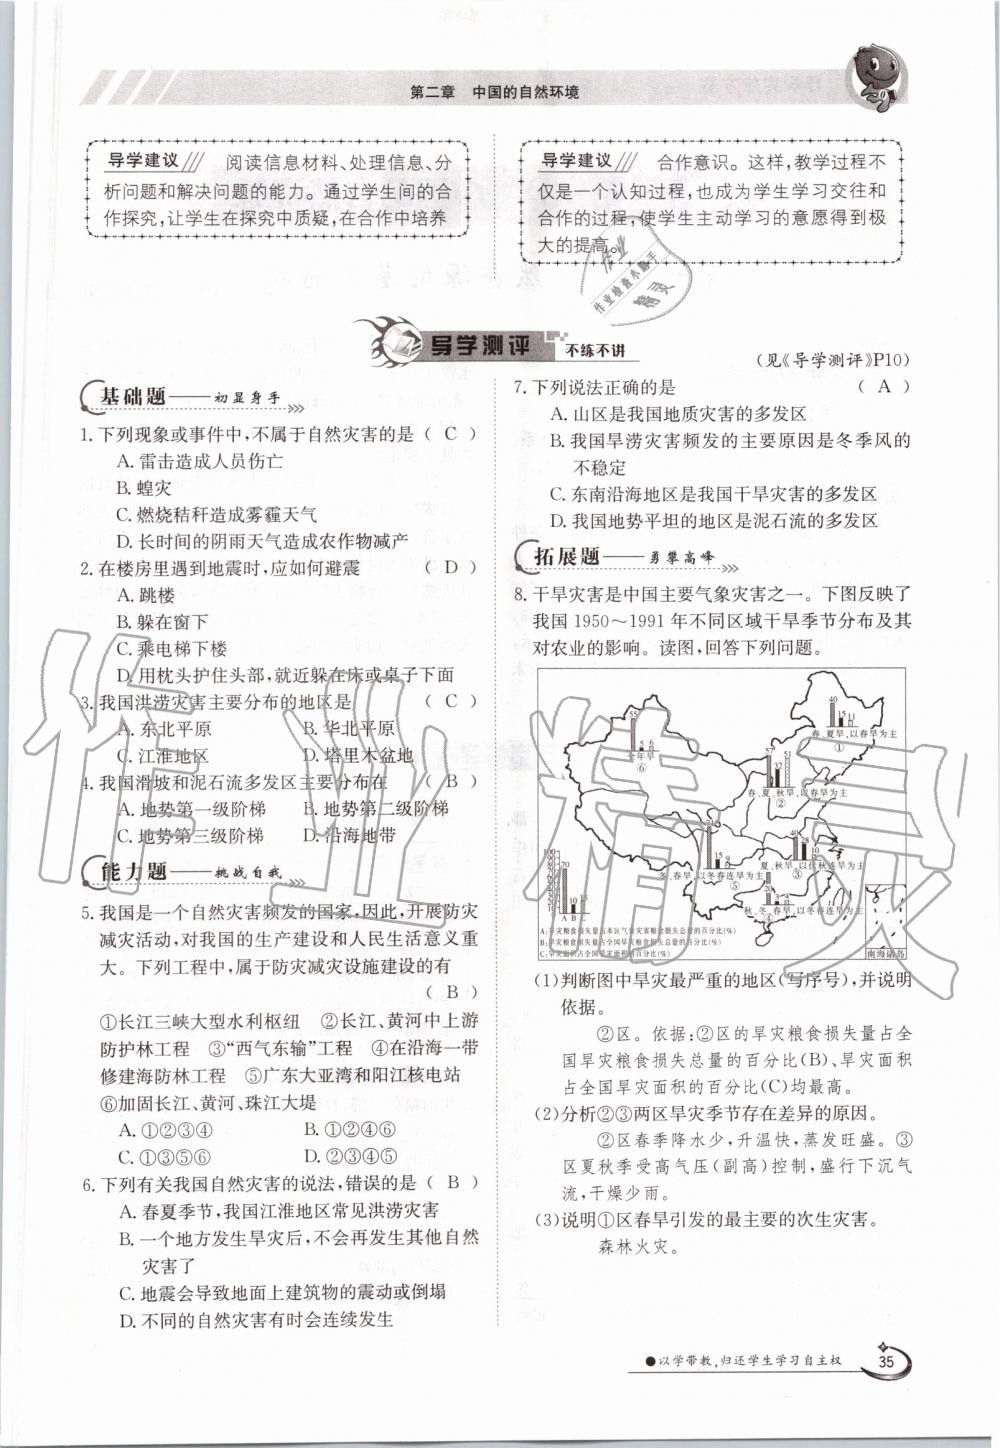 第二章　中国的自然环境
导学建议　阅读信息材料、处理信息、分
析问题和解决问题的能力。通过学生间的合
作探究,让学生在探究中质疑,在合作中培养
导学建议　合作意识。这样,教学过程不
仅是一个认知过程,也成为学生学习交往和
合作的过程,使学生主动学习的意愿得到极
大的提高。
导学测评 不练不讲
(见《导学测评》P10)
基础题——初显身手
1.下列现象或事件中,不属于自然灾害的是( C )
A.雷击造成人员伤亡
B.蝗灾
C.燃烧秸秆造成雾霾天气
D.长时间的阴雨天气造成农作物减产
2.在楼房里遇到地震时,应如何避震 ( D )
A.跳楼
B.躲在窗下
C.乘电梯下楼
D.用枕头护住头部,就近躲在床或桌子下面
3.我国洪涝灾害主要分布的地区是 ( C )
A.东北平原 B.华北平原
C.江淮地区 D.塔里木盆地
4.我国滑坡和泥石流多发区主要分布在 ( B )
A.地势第一级阶梯 B.地势第二级阶梯
C.地势第三级阶梯 D.沿海地带
能力题——挑战自我
5.我国是一个自然灾害频发的国家,因此,开展防灾
减灾活动,对我国的生产建设和人民生活意义重
大。下列工程中,属于防灾减灾设施建设的有
( B )
①长江三峡大型水利枢纽 ②长江、黄河中上游
防护林工程 ③“西气东输”工程 ④在沿海一带
修建海防林工程 ⑤广东大亚湾和阳江核电站
⑥加固长江、黄河、珠江大堤
A.①②③④ B.①②④⑥
C.①③⑤⑥ D.②③④⑤
6.下列有关我国自然灾害的说法,错误的是( B )
A.春夏季节,我国江淮地区常见洪涝灾害
B.一个地方发生旱灾后,不会再发生其他自然
灾害了
C.地震会导致地面上建筑物的震动或倒塌
D.不同的自然灾害有时会连续发生
7.下列说法正确的是 ( A )
A.山区是我国地质灾害的多发区
B.我国旱涝灾害频发的主要原因是冬季风的
不稳定
C.东南沿海地区是我国干旱灾害的多发区
D.我国地势平坦的地区是泥石流的多发区
拓展题——勇攀高峰
8.干旱灾害是中国主要气象灾害之一。下图反映了
我国1950～1991年不同区域干旱季节分布及其
对农业的影响。读图,回答下列问题。
40 15 11
春、夏旱,以春旱为主
①
55 5 6
全年旱
⑥
57 32 51
春、夏、秋旱,以春旱为主
②
71 15 9
冬、春旱,以冬春连旱为主
⑤
40 28 10
夏、秋旱,以伏秋连旱为主
③
20
秋、冬、春旱,以冬春连旱为主
④
70 10 15
A B C
A:旱灾粮食损失量占本区气象灾害粮食损失总量的百分比(%)
B:旱灾粮食损失量占全国旱灾粮食损失总量的百分比(%)
C:旱灾面积占全国旱灾面积的百分比(%)
南海诸岛
(1)判断图中旱灾最严重的地区(写序号),并说明
依据。
②区。依据:②区的旱灾粮食损失量占全
国旱灾粮食损失总量的百分比(B)、旱灾面积
占全国旱灾面积的百分比(C)均最高。
(2)分析②③两区旱灾季节存在差异的原因。
②区春季降水少,升温快,蒸发旺盛。③
区夏秋季受高气压(副高)控制,盛行下沉气
流,干燥少雨。
(3)说明①区春旱引发的最主要的次生灾害。
森林火灾。
作业精灵
作业
作业检查小助手
精灵
●以学带教,归还学生学习自主权
35